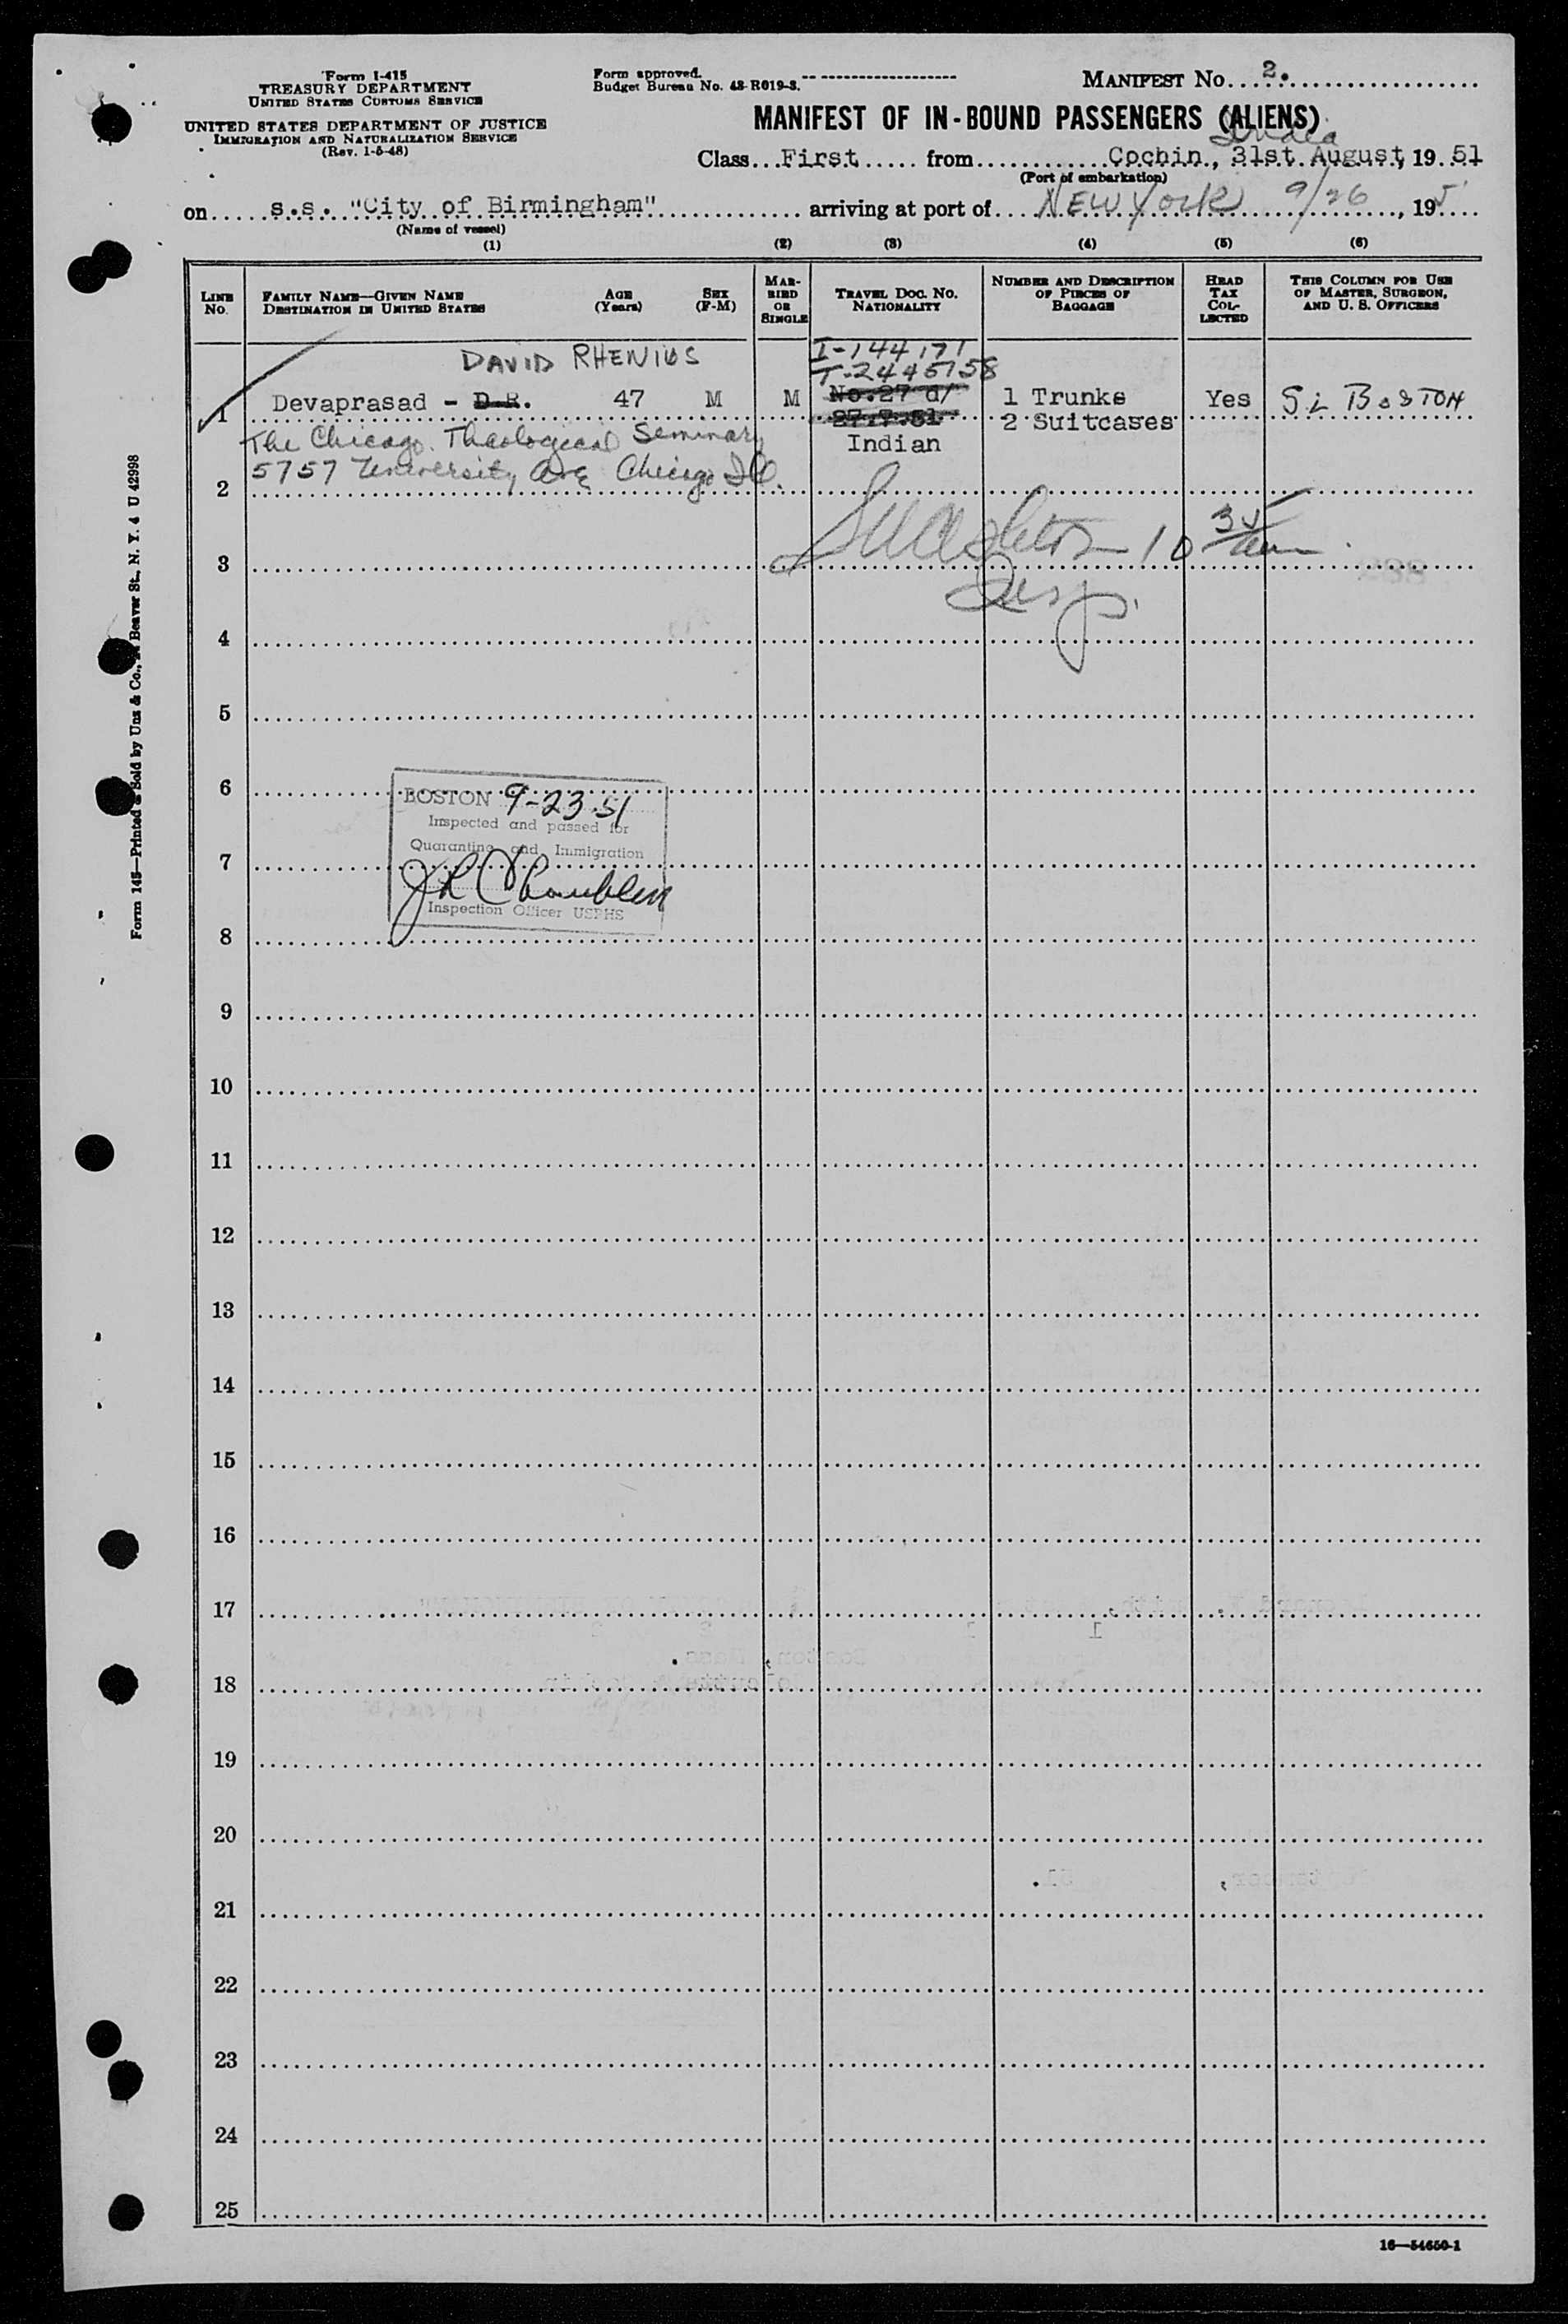 Form I-415
TREASURY DEPARTMENT
UNITED STATES CUSTOMS SERVICE
UNITED STATES DEPARTMENT OF JUSTICE
IMMIGRATION AND NATURALIZATION SERVICE
(Rev. 1-5-48)
Form approved.
Budget Bureau No. 43-R019-3.
MANIFEST No. 2.
MANIFEST OF IN-BOUND PASSENGERS (ALIENS)
India
Class First from Cochin, 31st August, 19 51
(Port of embarkation)
on s.s. "City of Birmingham" arriving at port of NEW YORK 9/26, 195
(Name of vessel)
(1) (2) (3) (4) (5) (6)
LINE No.
FAMILY NAME—GIVEN NAME
DESTINATION IN UNITED STATES
AGE (Years)
SEX (F-M)
MARRIED OR SINGLE
TRAVEL DOC. No. NATIONALITY
NUMBER AND DESCRIPTION OF PIECES OF BAGGAGE
HEAD TAX COLLECTED
THIS COLUMN FOR USE OF MASTER, SURGEON, AND U. S. OFFICERS
DAVID RHENIUS
I-144171
T-2445758
1 Devaprasad - D.R. 47 M M No.27 d/ 1 Trunks Yes BOSTON
27.7.51 2 Suitcases
The Chicago Theological Seminary Indian
5757 University Ave Chicago Ill.
2
10 35 am
3
Insp.
4
5
6
BOSTON 9-23-51
Inspected and passed for
Quarantine and Immigration
7
Inspection Officer USPHS
8
9
10
11
12
13
14
15
16
17
18
19
20
21
22
23
24
25
16—54650-1
Form 145—Printed & Sold by Unz & Co., Beaver St., N. Y. 4 U 42998